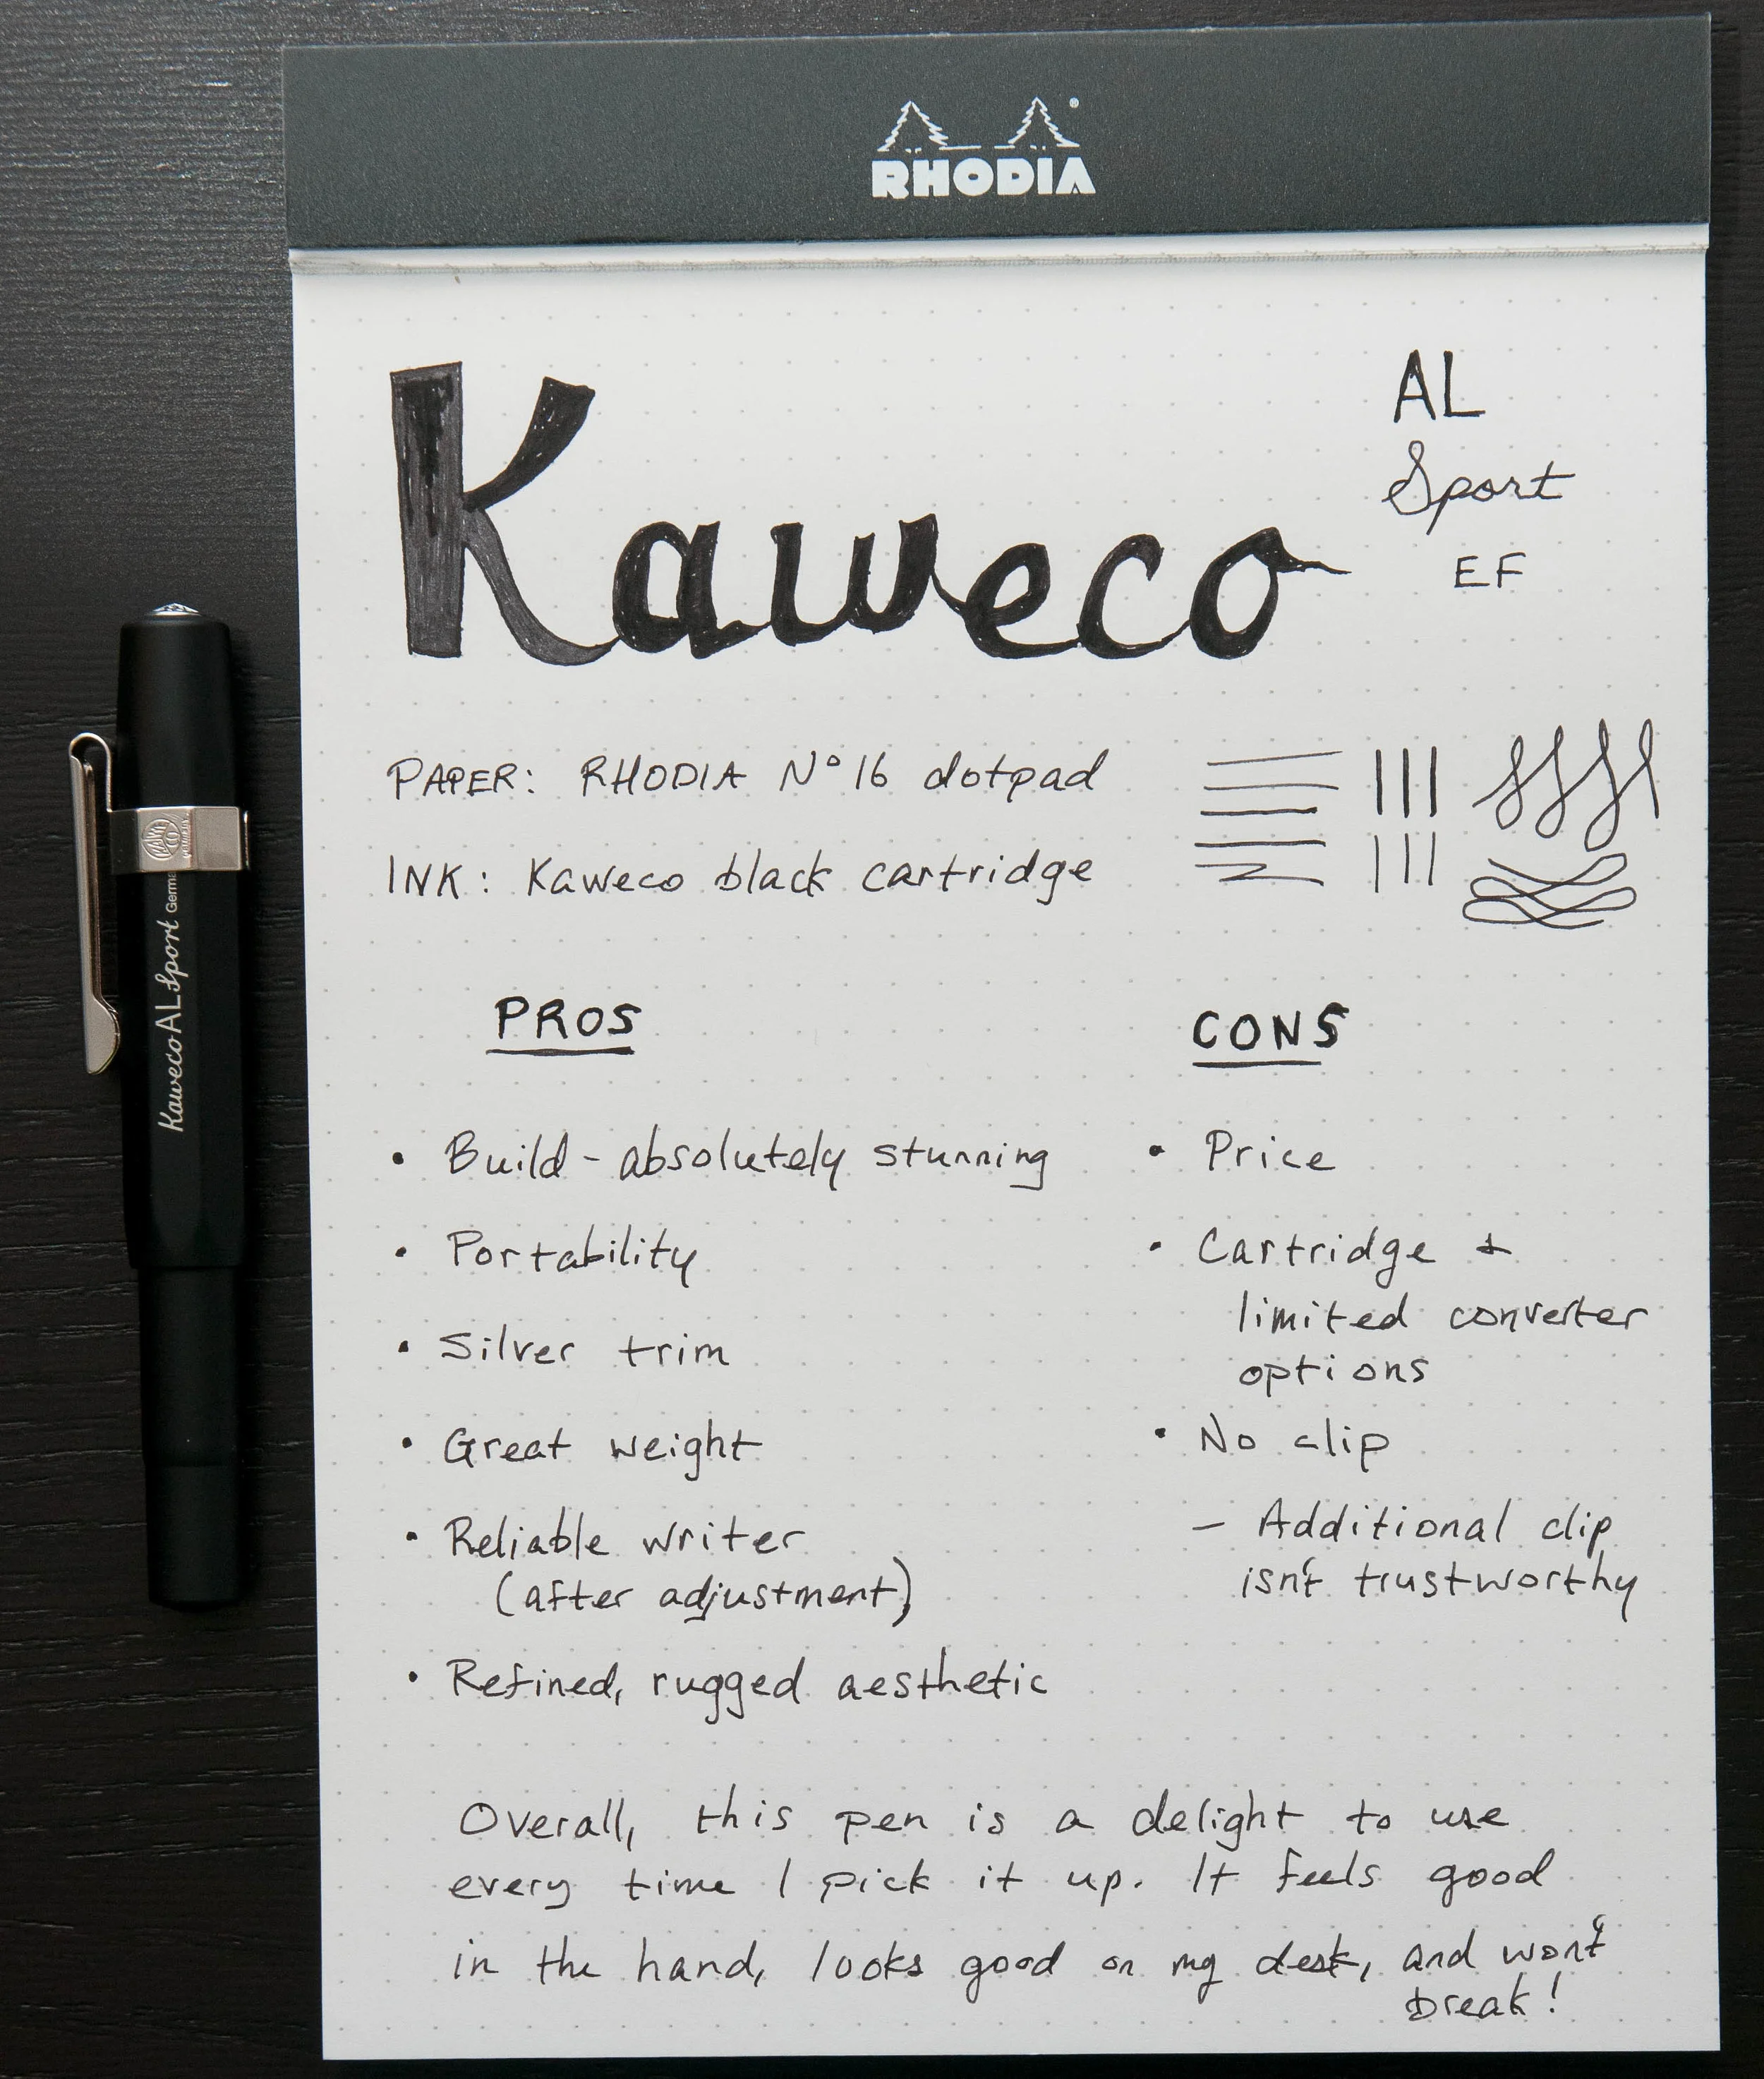 RHODIA
Kaweco
AL
Sport
EF
PAPER: RHODIA Nº 16 dotpad
INK: Kaweco black cartridge
PROS
• Build - absolutely stunning
• Portability
• Silver trim
• Great weight
• Reliable writer
(after adjustment)
• Refined, rugged aesthetic
CONS
• Price
• Cartridge +
limited converter
options
• No clip
- Additional clip
isn't trustworthy
Overall, this pen is a delight to use
every time I pick it up. It feels good
in the hand, looks good on my desk, and won't
break!
Kaweco AL Sport Germa